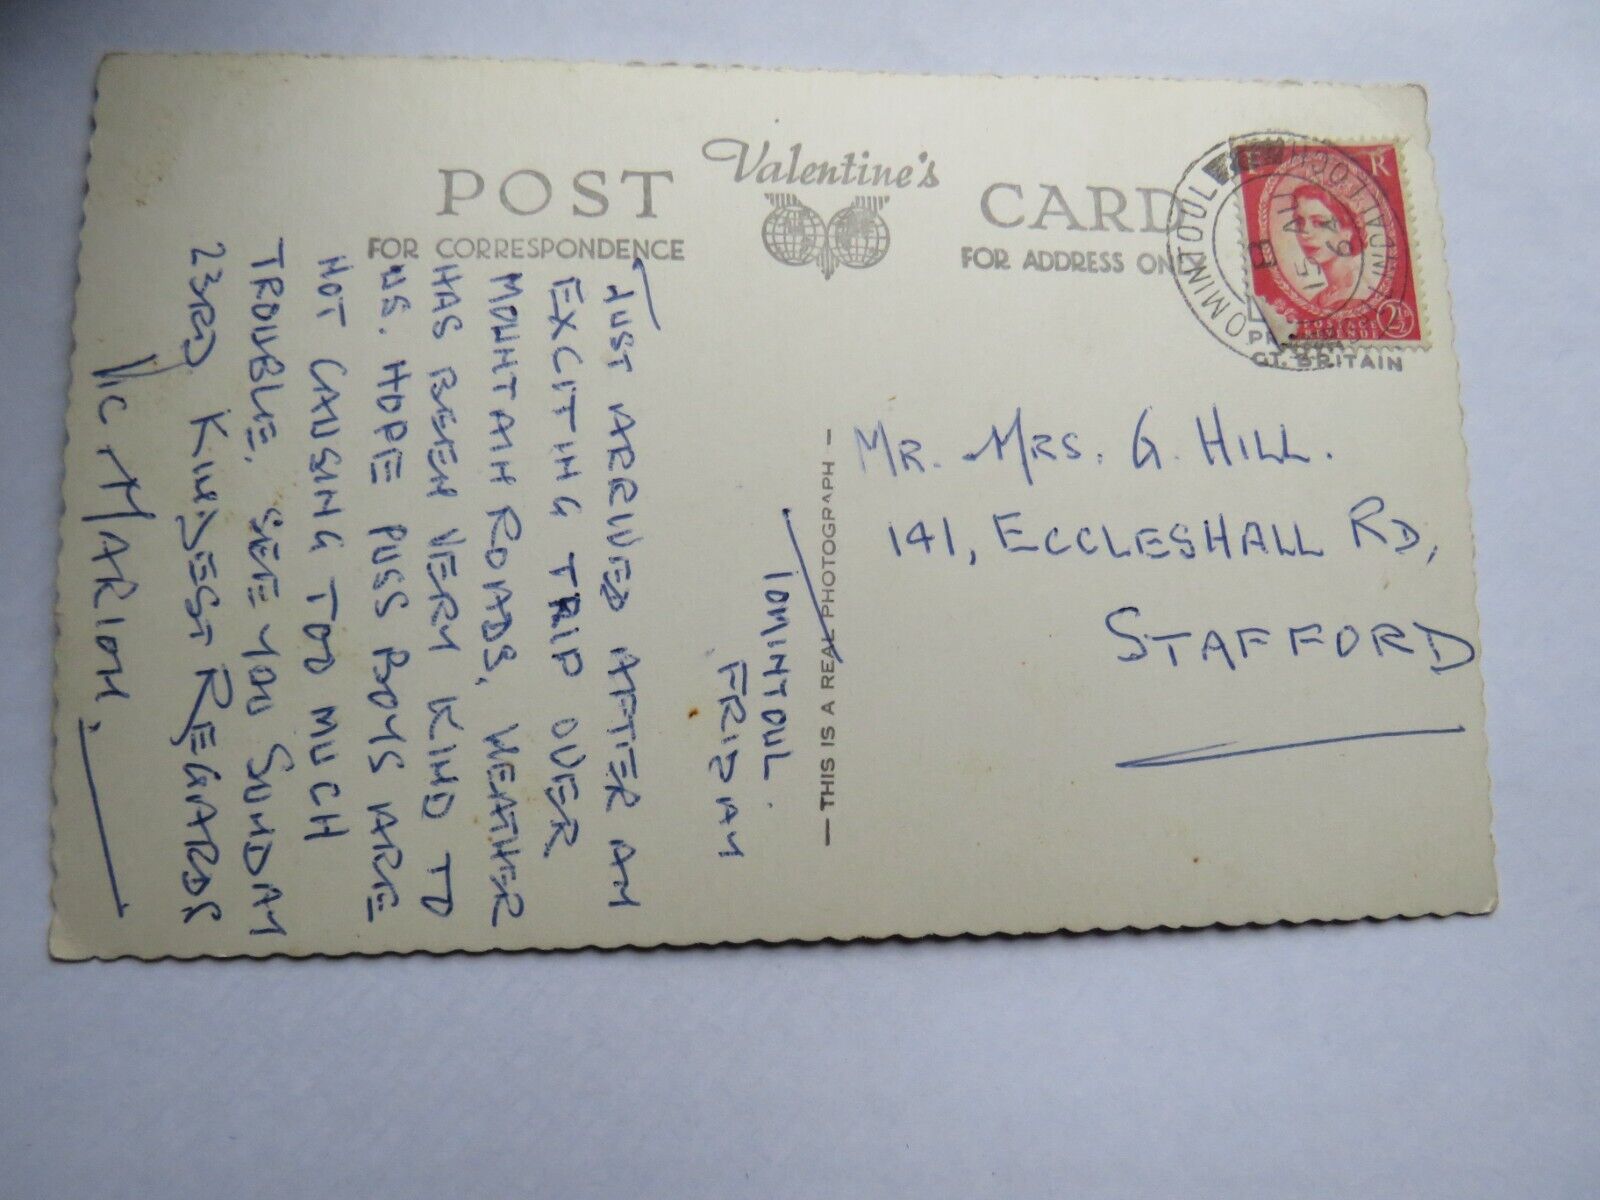 POST
Valentine's
CARD
FOR CORRESPONDENCE
FOR ADDRESS ONLY
TOMINTOUL
BALLINDALLOCH
15 AU
64
E R
POSTAGE
2½
GT. BRITAIN
TOMINTOUL.
FRIDAY
JUST ARRIVED AFTER AN
EXCITING TRIP OVER
MOUNTAIN ROADS, WEATHER
HAS BEEN VERY KIND TO
US. HOPE PUSS BOYS ARE
NOT CAUSING TOO MUCH
TROUBLE. SEE YOU SUNDAY
23RD KINDEST REGARDS
VIC + MARION.
— THIS IS A REAL PHOTOGRAPH —
MR. MRS. G. HILL.
141, ECCLESHALL RD,
STAFFORD